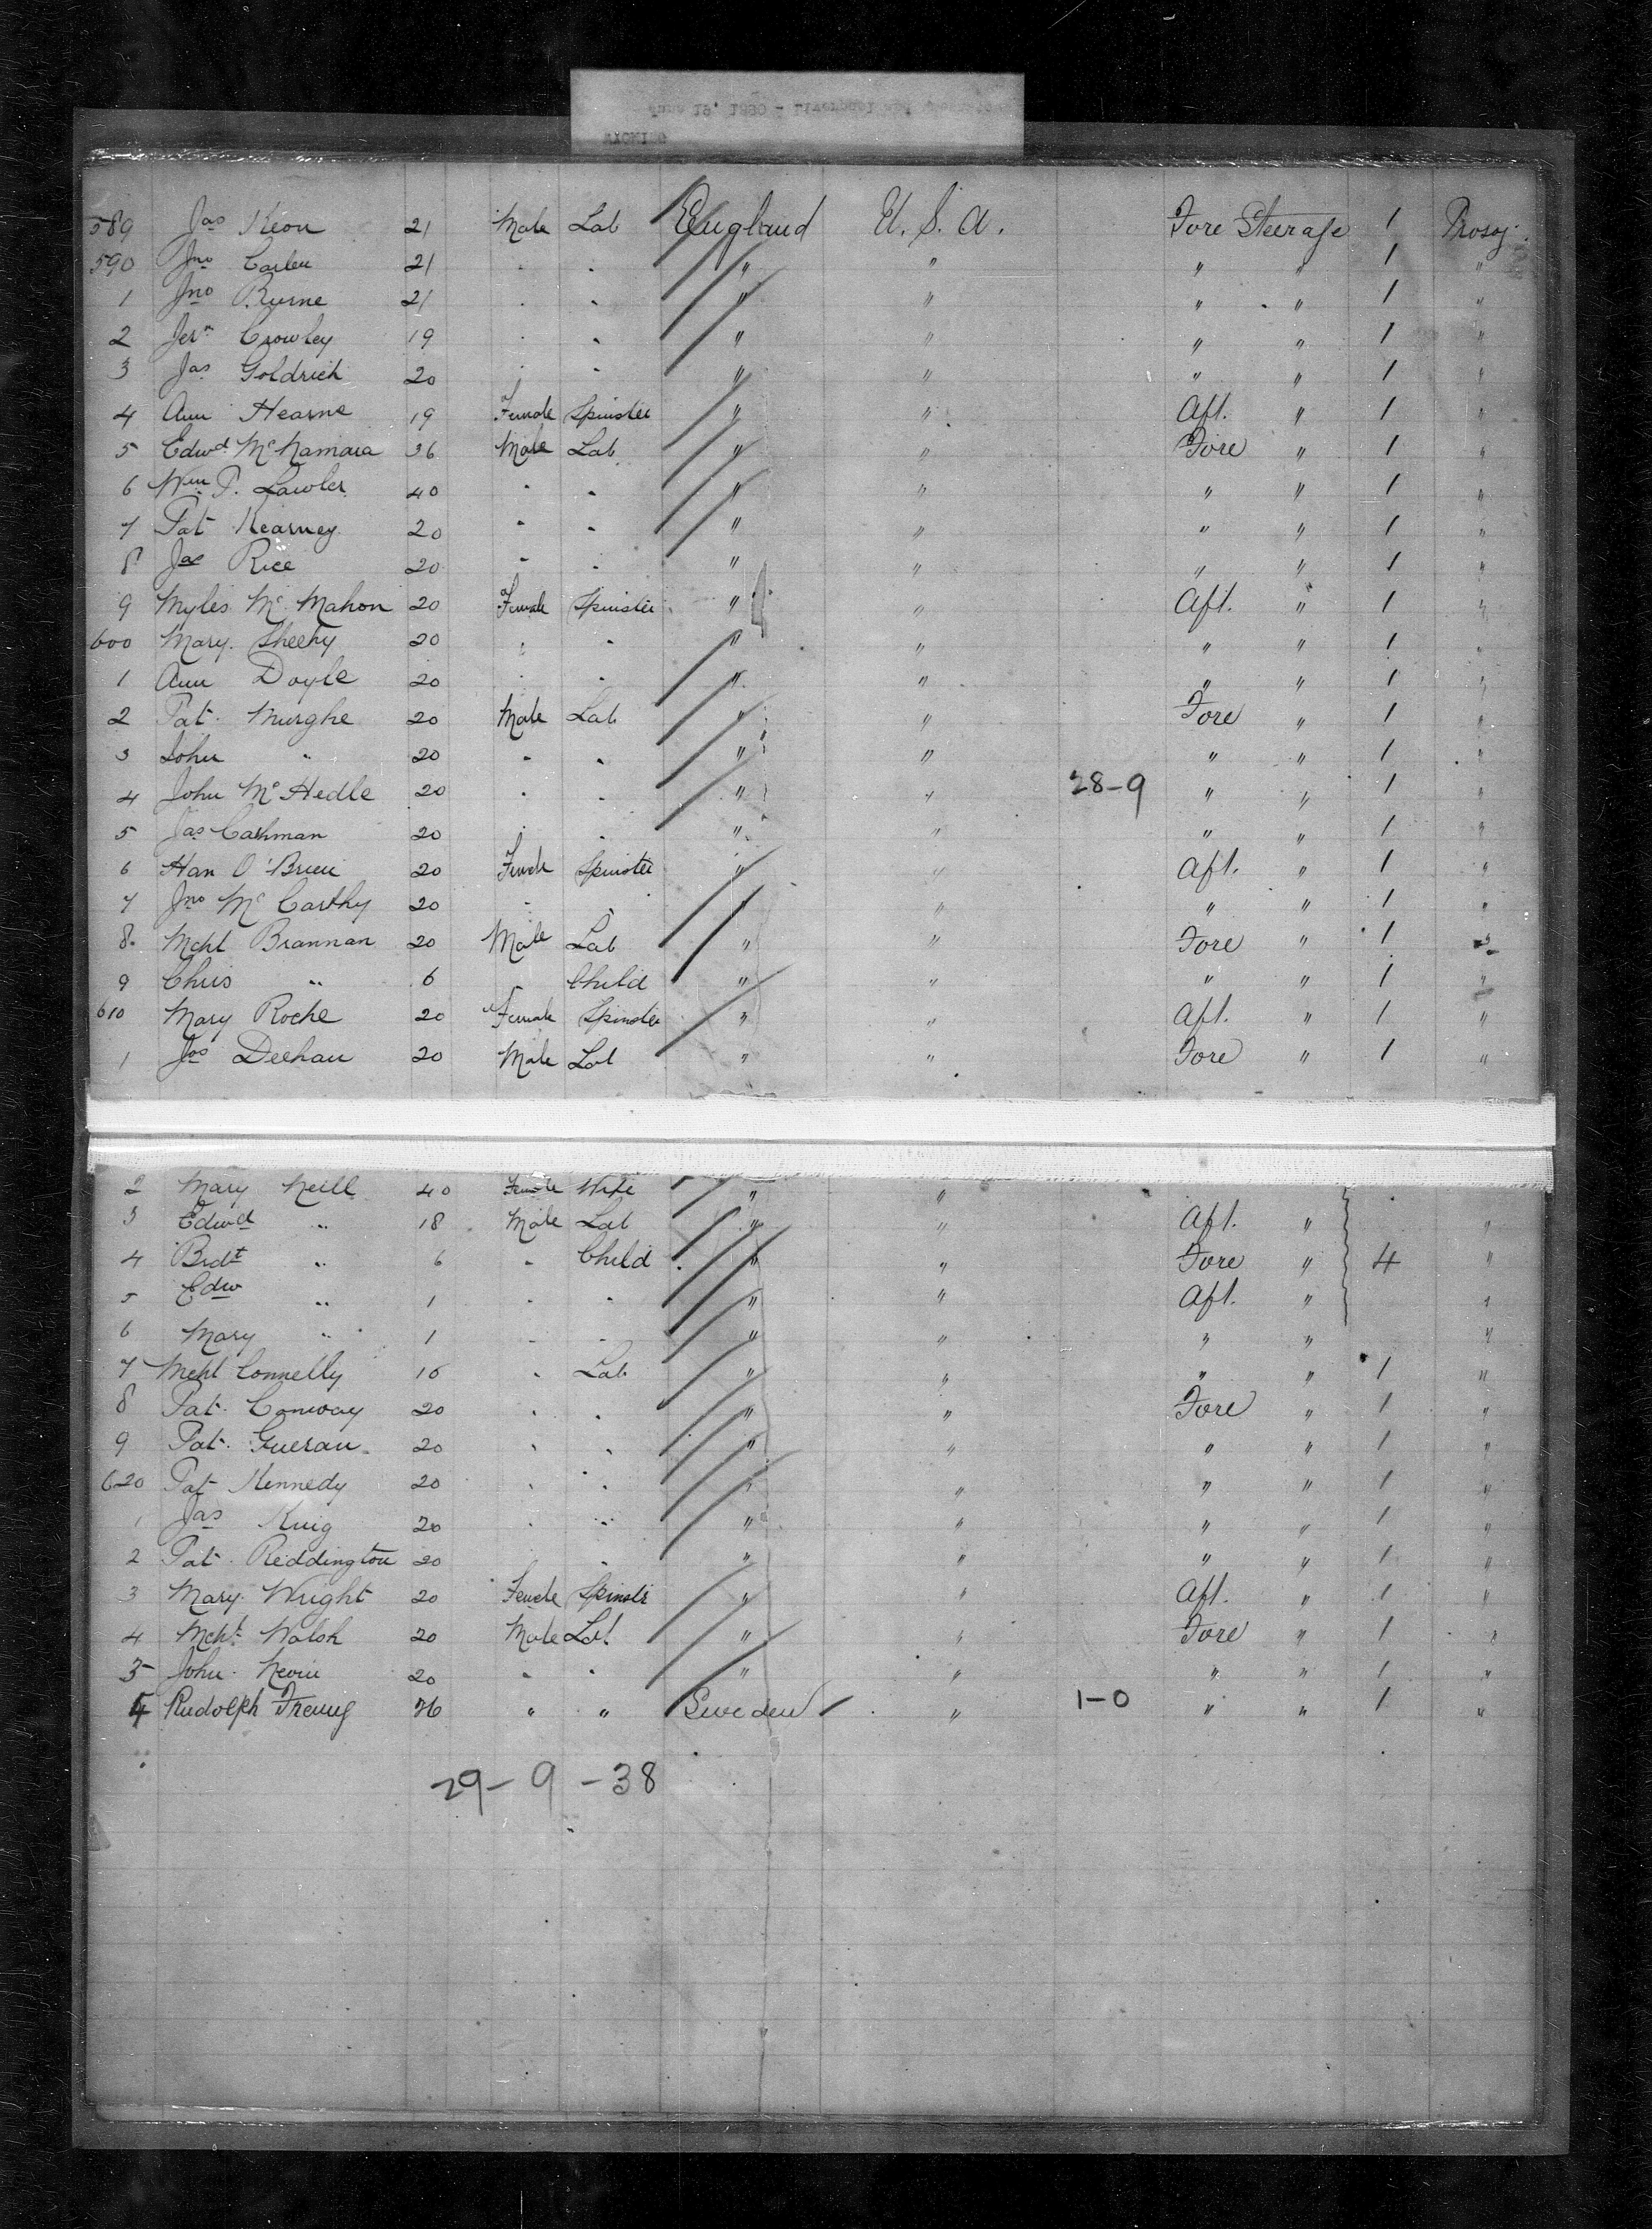 589 Jas Keon 21 Male Lab England U. S. A. Fore Steerage 1
590 Jno 21 " " " " " " 1 "
1 Jno Burne 21 " " " " " " 1 "
2 Jerh Crowley 19 " " " " " " 1 "
3 Jas Goldrich 20 " " " " " " 1 "
4 Ann Hearne 19 Female Spinster " " Aft. " 1 "
5 Edwd McNamara Male Lab " " Fore " 1 "
6 Wm P. Lawler 40 " " " " " " 1 "
7 Pat Kearney 20 " " " " " " 1 "
8 Jas Rice 20 " " " " " " 1 "
9 Myles Mc Mahon 20 Female Spinster " " Aft. " 1 "
600 Mary Sheehy 20 " " " " " " 1 "
1 Ann Doyle 20 " " " " " " 1 "
2 Pat Murghe 20 Male Lab " " Fore " 1 "
3 John " 20 " " " " " " 1 "
4 John Mc Hedle 20 " " " " 28-9 " " 1 "
5 Jas Cashman 20 " " " " " " 1 "
6 Han O'Brien 20 Female Spinster " " Aft. " 1 "
7 Jno Mc Carthy 20 " " " " " " 1 "
8 Mchl Brannan 20 Male Lab " " Fore " 1 "
9 Chris " 6 " Child " " " " 1 "
610 Mary Roche 20 Female Spinster " " Aft. " 1 "
1 Jos Deehan 20 Male Lab " " Fore " 1 "
2 Mary Neill 40 Female Wife " "
3 Edwd " 18 Male Lab " " Aft. " "
4 Bridt " 6 " Child " " Fore " 4 "
5 Edw " 1 " " " " Aft. " "
6 Mary " 1 " " " " " " "
7 Mchl Connelly 16 " Lab " " " " 1 "
8 Pat Conway 20 " " " " Fore " 1 "
9 Pat Gueran 20 " " " " " " 1 "
620 Pat Kennedy 20 " " " " " " 1 "
1 Jas 20 " " " " " " 1 "
2 Pat Reddington 20 " " " " " " 1 "
3 Mary Wright 20 Female Spinstr " " Aft. " 1 "
4 Mchl Walsh 20 Male Lab " " Fore " 1 "
5 John Nevin 20 " " " " " " 1 "
Rudolph 36 " " Sweden " 1-0 " " 1 "
29-9-38